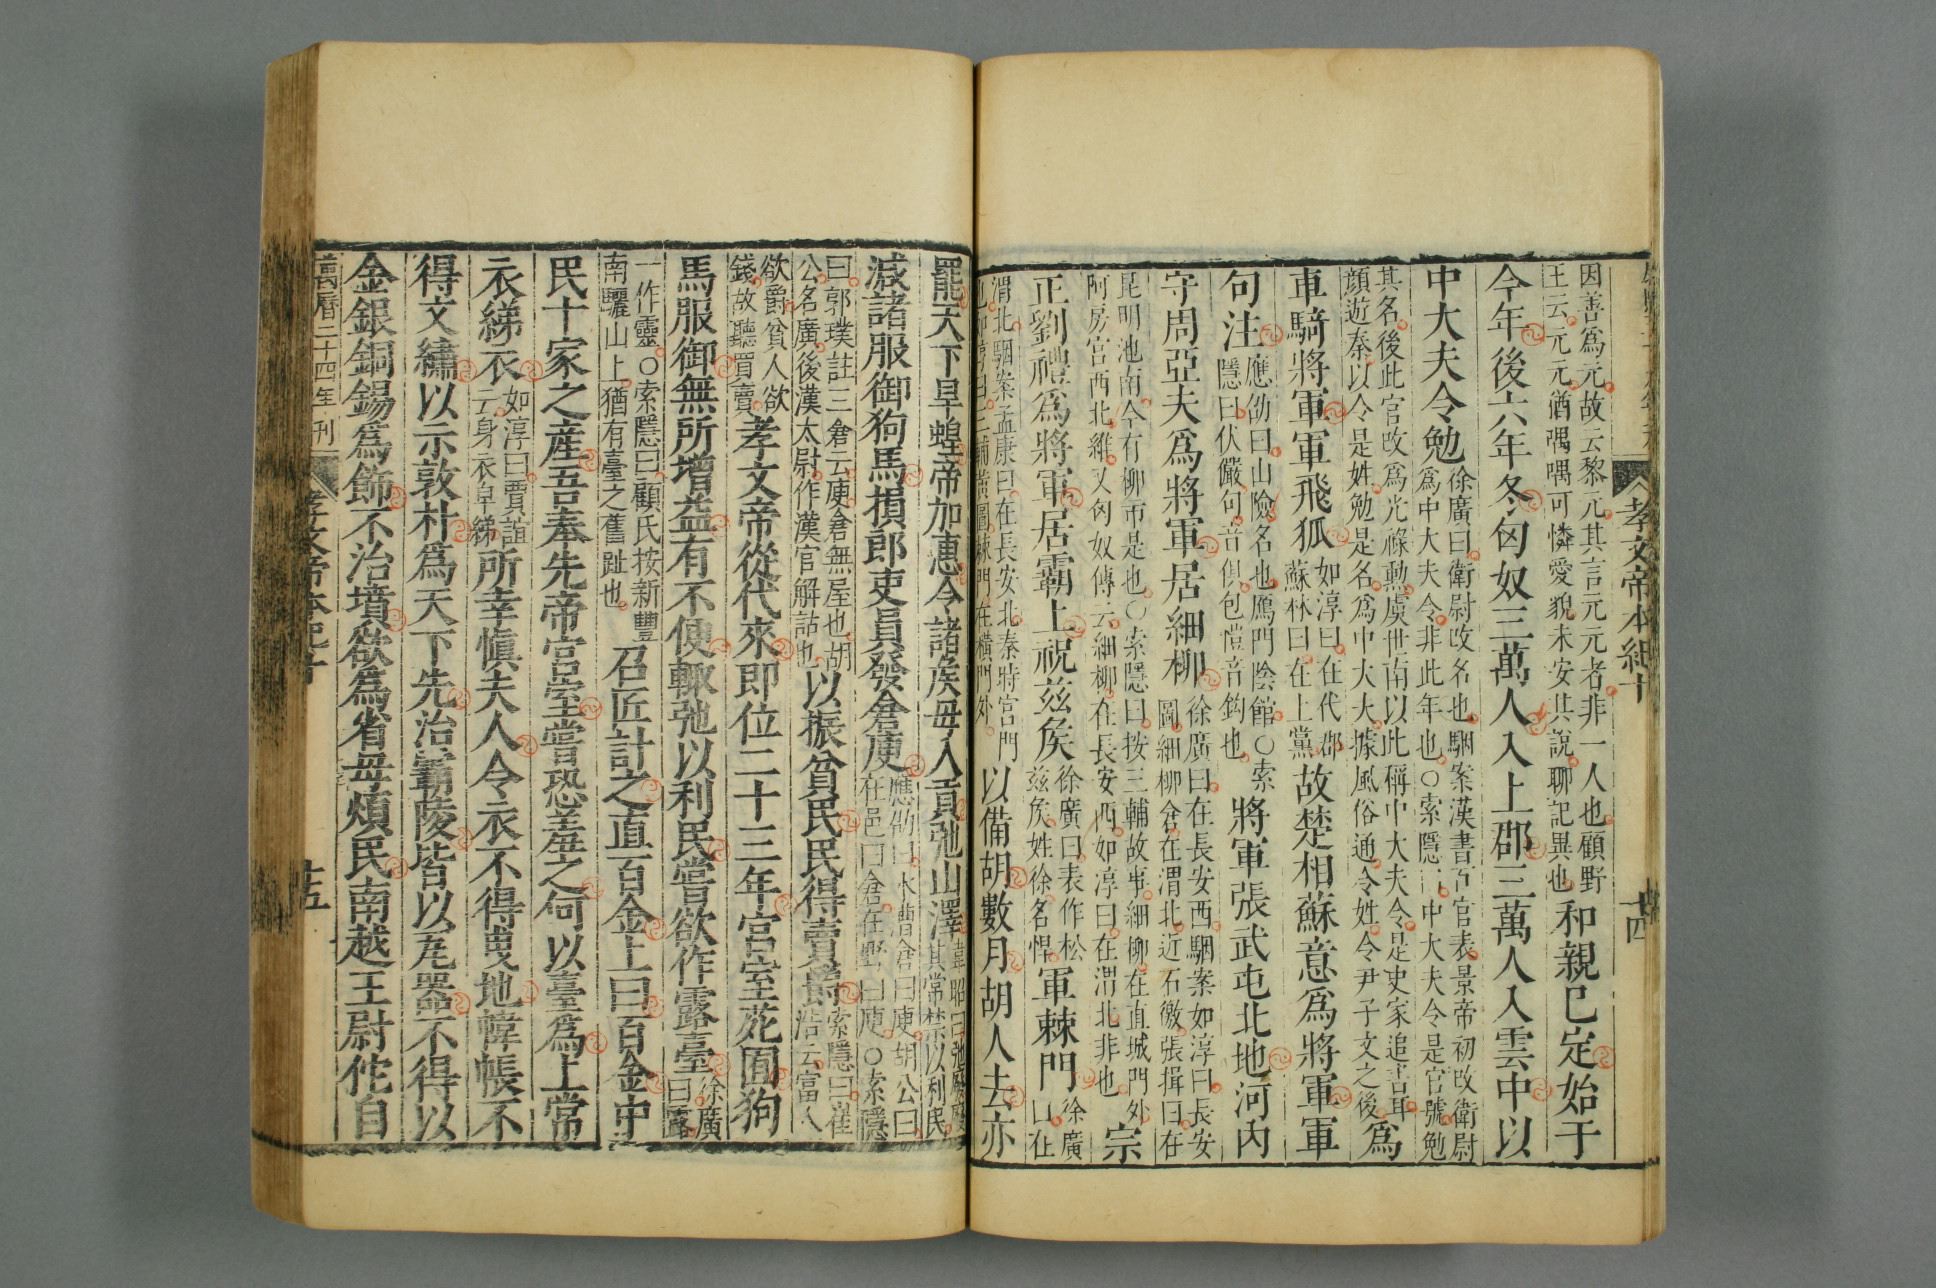 孝文帝本紀十
十四
因善爲元故云黎元其言元元者非一人也顧野
王云元元猶喁喁可憐愛貌未安其說聊記異也
和親已定始于
今年後六年冬匈奴三萬人入上郡三萬人入雲中以
中大夫令勉
徐廣曰衛尉改名也駰案漢書百官表景帝初改衛尉
爲中大夫令非此年也○索隱曰中大夫令是官號勉
其名後此官改爲光祿勳虞世南以此稱中大夫令是史家追書耳
顔遊秦以令是姓勉是名爲中大夫據風俗通令姓令尹子文之後
爲
車騎將軍軍飛狐
如淳曰在代郡
蘇林曰在上黨
故楚相蘇意爲將軍軍
句注
應劭曰山險名也鴈門陰館○索
隱曰伏儼句音俱包愷音鉤也
將軍張武屯北地河內
守周亞夫爲將軍居細柳
徐廣曰在長安西駰案如淳曰長安
圖細柳倉在渭北近石徼張揖曰在
昆明池南今有柳市是也○索隱曰按三輔故事細柳在直城門外
阿房宮西北維又匈奴傳云細柳在長安西如淳曰在渭北非也
宗
正劉禮爲將軍居霸上祝茲侯
徐廣曰表作松
茲侯姓徐名悍
軍棘門
徐廣
曰在
渭北駰案孟康曰在長安北秦時宮門
也如淳曰三輔黃圖棘門在橫門外
以備胡數月胡人去亦
罷天下旱蝗帝加惠令諸侯毋入貢弛山澤
韋昭曰弛解廢
其常禁以利民
減諸服御狗馬損郎吏員發倉庾
應劭曰水曹倉曰庾胡公曰
在邑曰倉在野曰庾○索隱
曰郭璞註三倉云庾倉無屋也胡
公名廣後漢太尉作漢官解詁也
以振貧民民得賣爵
索隱曰崔
浩云富人
欲爵貧人欲
錢故聽買賣
孝文帝從代來即位二十三年宮室苑囿狗
馬服御無所增益有不便輒弛以利民嘗欲作露臺
徐廣
曰露
一作靈○索隱曰顧氏按新豐
南驪山上猶有臺之舊趾也
召匠計之直百金上曰百金中
民十家之產吾奉先帝宮室嘗恐羞之何以臺爲上常
衣綈衣
如淳曰賈誼
云身衣皁綈
所幸愼夫人令衣不得曳地幃帳不
得文繡以示敦朴爲天下先治霸陵皆以瓦器不得以
金銀銅錫爲飾不治墳欲爲省毋煩民南越王尉佗自
萬曆二十四年刊
孝文帝本紀十
十五